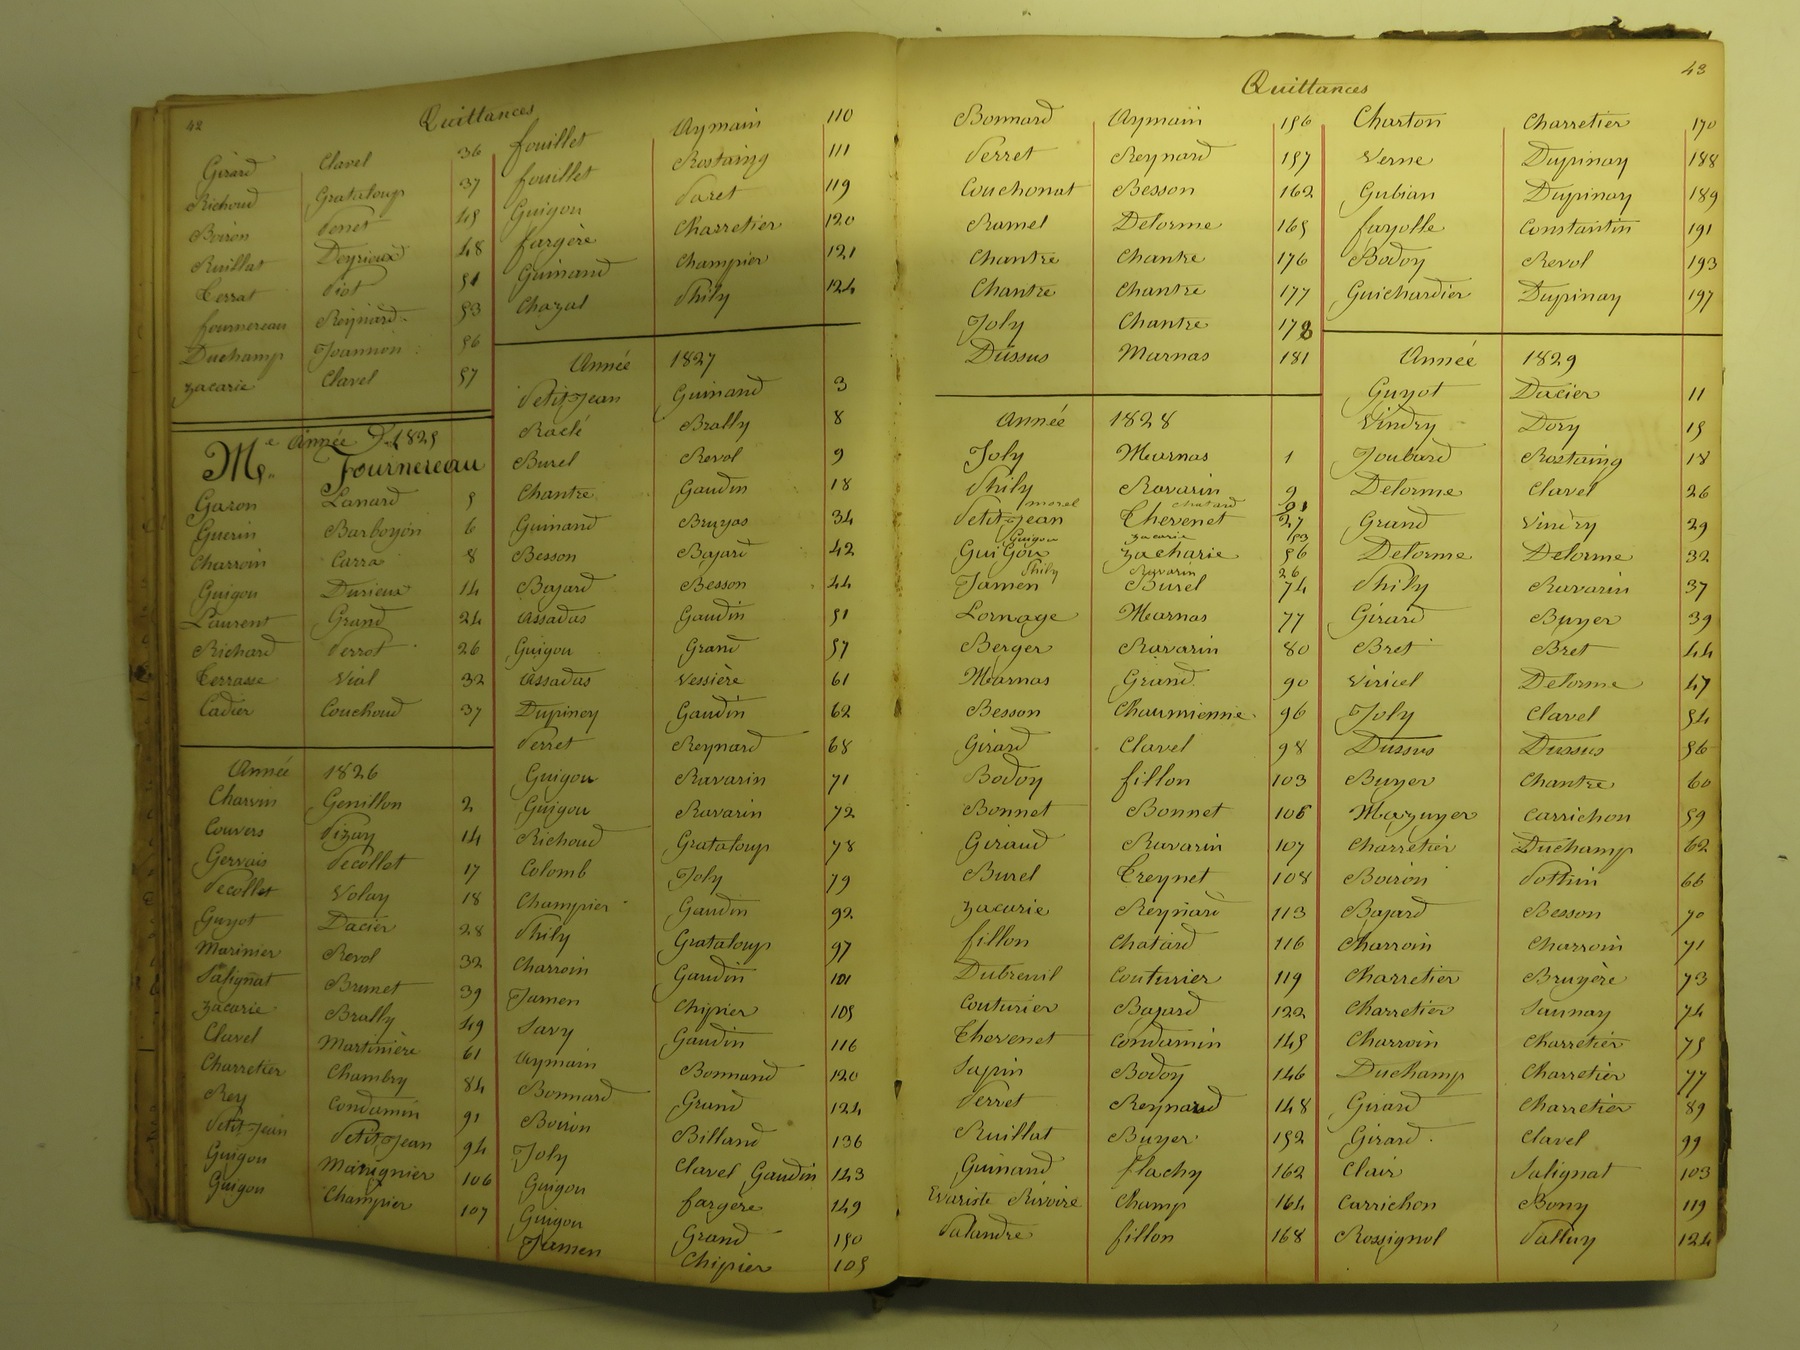 42
Quittances
Girard Clavel 36
Richoud Grataloup 37
Boiron Penet 45
Ruillat Deyrieux 48
Terrat Piot 51
fournereau Reynard 53
Duchamp Joannon 56
Zacarie Clavel 57
Année 1825
Me. Fournereau
Garon Lanard 5
Guerin Barboyon 6
Charroin Carra 8
Guigou Durieux 14
Laurent Grand 24
Richard Perrot 26
Terrasse Vial 32
Cadier Couchoud 37
Année 1826
Charvin Genillon 2
Couvers Pizay 14
Gervais Pecollet 17
Pecollet Volay 18
Guyot Dacier 28
Marinier Revol 32
Salignat Brunet 39
Zacarie Brally 49
Clavel Martiniere 61
Charretier Chambry 84
Rey Condamin 91
Petit-Jean Petit-Jean 94
Guigou Matignier 106
Guigou Champier 107
fouillet Aymain 110
fouillet Rostaing 111
Guigou Paret 119
fargère Charretier 120
Guinand Champier 121
Chazal Phily 124
Année 1827
Petit-Jean Guinand 3
Raclé Brally 8
Burel Revol 9
Chantre Gaudin 18
Guinand Bruyas 34
Besson Bajard 42
Bajard Besson 44
Assadas Gaudin 51
Guigou Grand 57
Assadas Vessière 61
Dupiney Gaudin 62
Perret Reynard 68
Guigou Ravarin 71
Guigou Ravarin 72
Richoud Grataloup 78
Colomb Joly 79
Champier Gaudin 92
Phily Grataloup 97
Charroin Gaudin 101
Jamen Chipier 105
Savy Gaudin 116
Aymain Bonnand 120
Bonnard Grand 124
Boiron Billand 136
Joly Clavel Gaudin 143
Guigou fargère 149
Guigou Grand 150
Jamen Chipier 105
43
Quittances
Bonnard Aymain 156
Perret Reynard 157
Couchonat Besson 162
Ramel Delorme 165
Chantre Chantre 176
Chantre Chantre 177
Joly Chantre 178
Dussus Marnas 181
Année 1828
Joly Marnas 1
Phily Ravarin 9
morel Chatard 21
Petit-Jean Thevenet 27
Guigou Zacarie 53
GuiGou Zacharie 56
Phily Ravarin 26
Jamen Burel 74
Lornage Marnas 77
Berger Ravarin 80
Marnas Grand 90
Besson Chaumienne 96
Girard Clavel 98
Bodoy fillon 103
Bonnet Bonnet 105
Giraud Ravarin 107
Burel Treynet 108
Zacarie Reynard 113
fillon Chatard 116
Dubreuil Couturier 119
Couturier Bajard 122
Thevenet Condamin 145
Sapin Bodoy 146
Perret Reynard 148
Ruillat Buyer 152
Guinand flachy 162
Evariste Rivoire Champ 164
Palandre fillon 168
Charton Charretier 170
Verne Dupinay 188
Gubian Dupinay 189
fayolle Constantin 191
Bodoy Revol 193
Guichardier Dupinay 197
Année 1829
Guyot Dacier 11
Vindry Dory 15
Joubard Rostaing 18
Delorme Clavel 26
Grand Vindry 29
Delorme Delorme 32
Phily Ravarin 37
Girard Buyer 39
Bret Bret 44
Viricel Delorme 47
Joly Clavel 54
Dussus Dussus 56
Buyer Chantre 60
Mazuyer Carrichon 59
Charretier Duchamp 62
Boiron Pothin 66
Bajard Besson 70
Charroin Charroin 71
Charretier Bruyère 73
Charretier Saunay 74
Charroin Charretier 75
Duchamp Charretier 77
Girard Charretier 89
Girard Clavel 99
Clair Salignat 103
Carrichon Bony 119
Rossignol Palluy 124